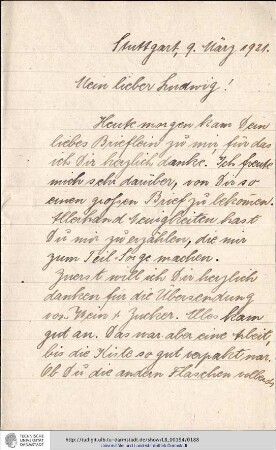 Stuttgart, 9. März 1921.
Mein lieber Ludwig!
Heute morgen kam Dein
liebes Brieflein zu mir für das
ich Dir herzlich danke. Ich freute
mich sehr darüber, von Dir so
einen großen Brief zu bekommen.
Allerhand Neuigkeiten hast
Du mir zu erzählen, die mir
zum Teil Sorge machen.
Zuerst will ich Dir herzlich
danken für die Übersendung
von Wein & Zucker. Alles kam
gut an. Das war aber eine Arbeit,
bis die Kiste so gut verpakt war.
Ob Du die andern Flaschen
TECHNISCHE
UNIVERSITÄT
DARMSTADT